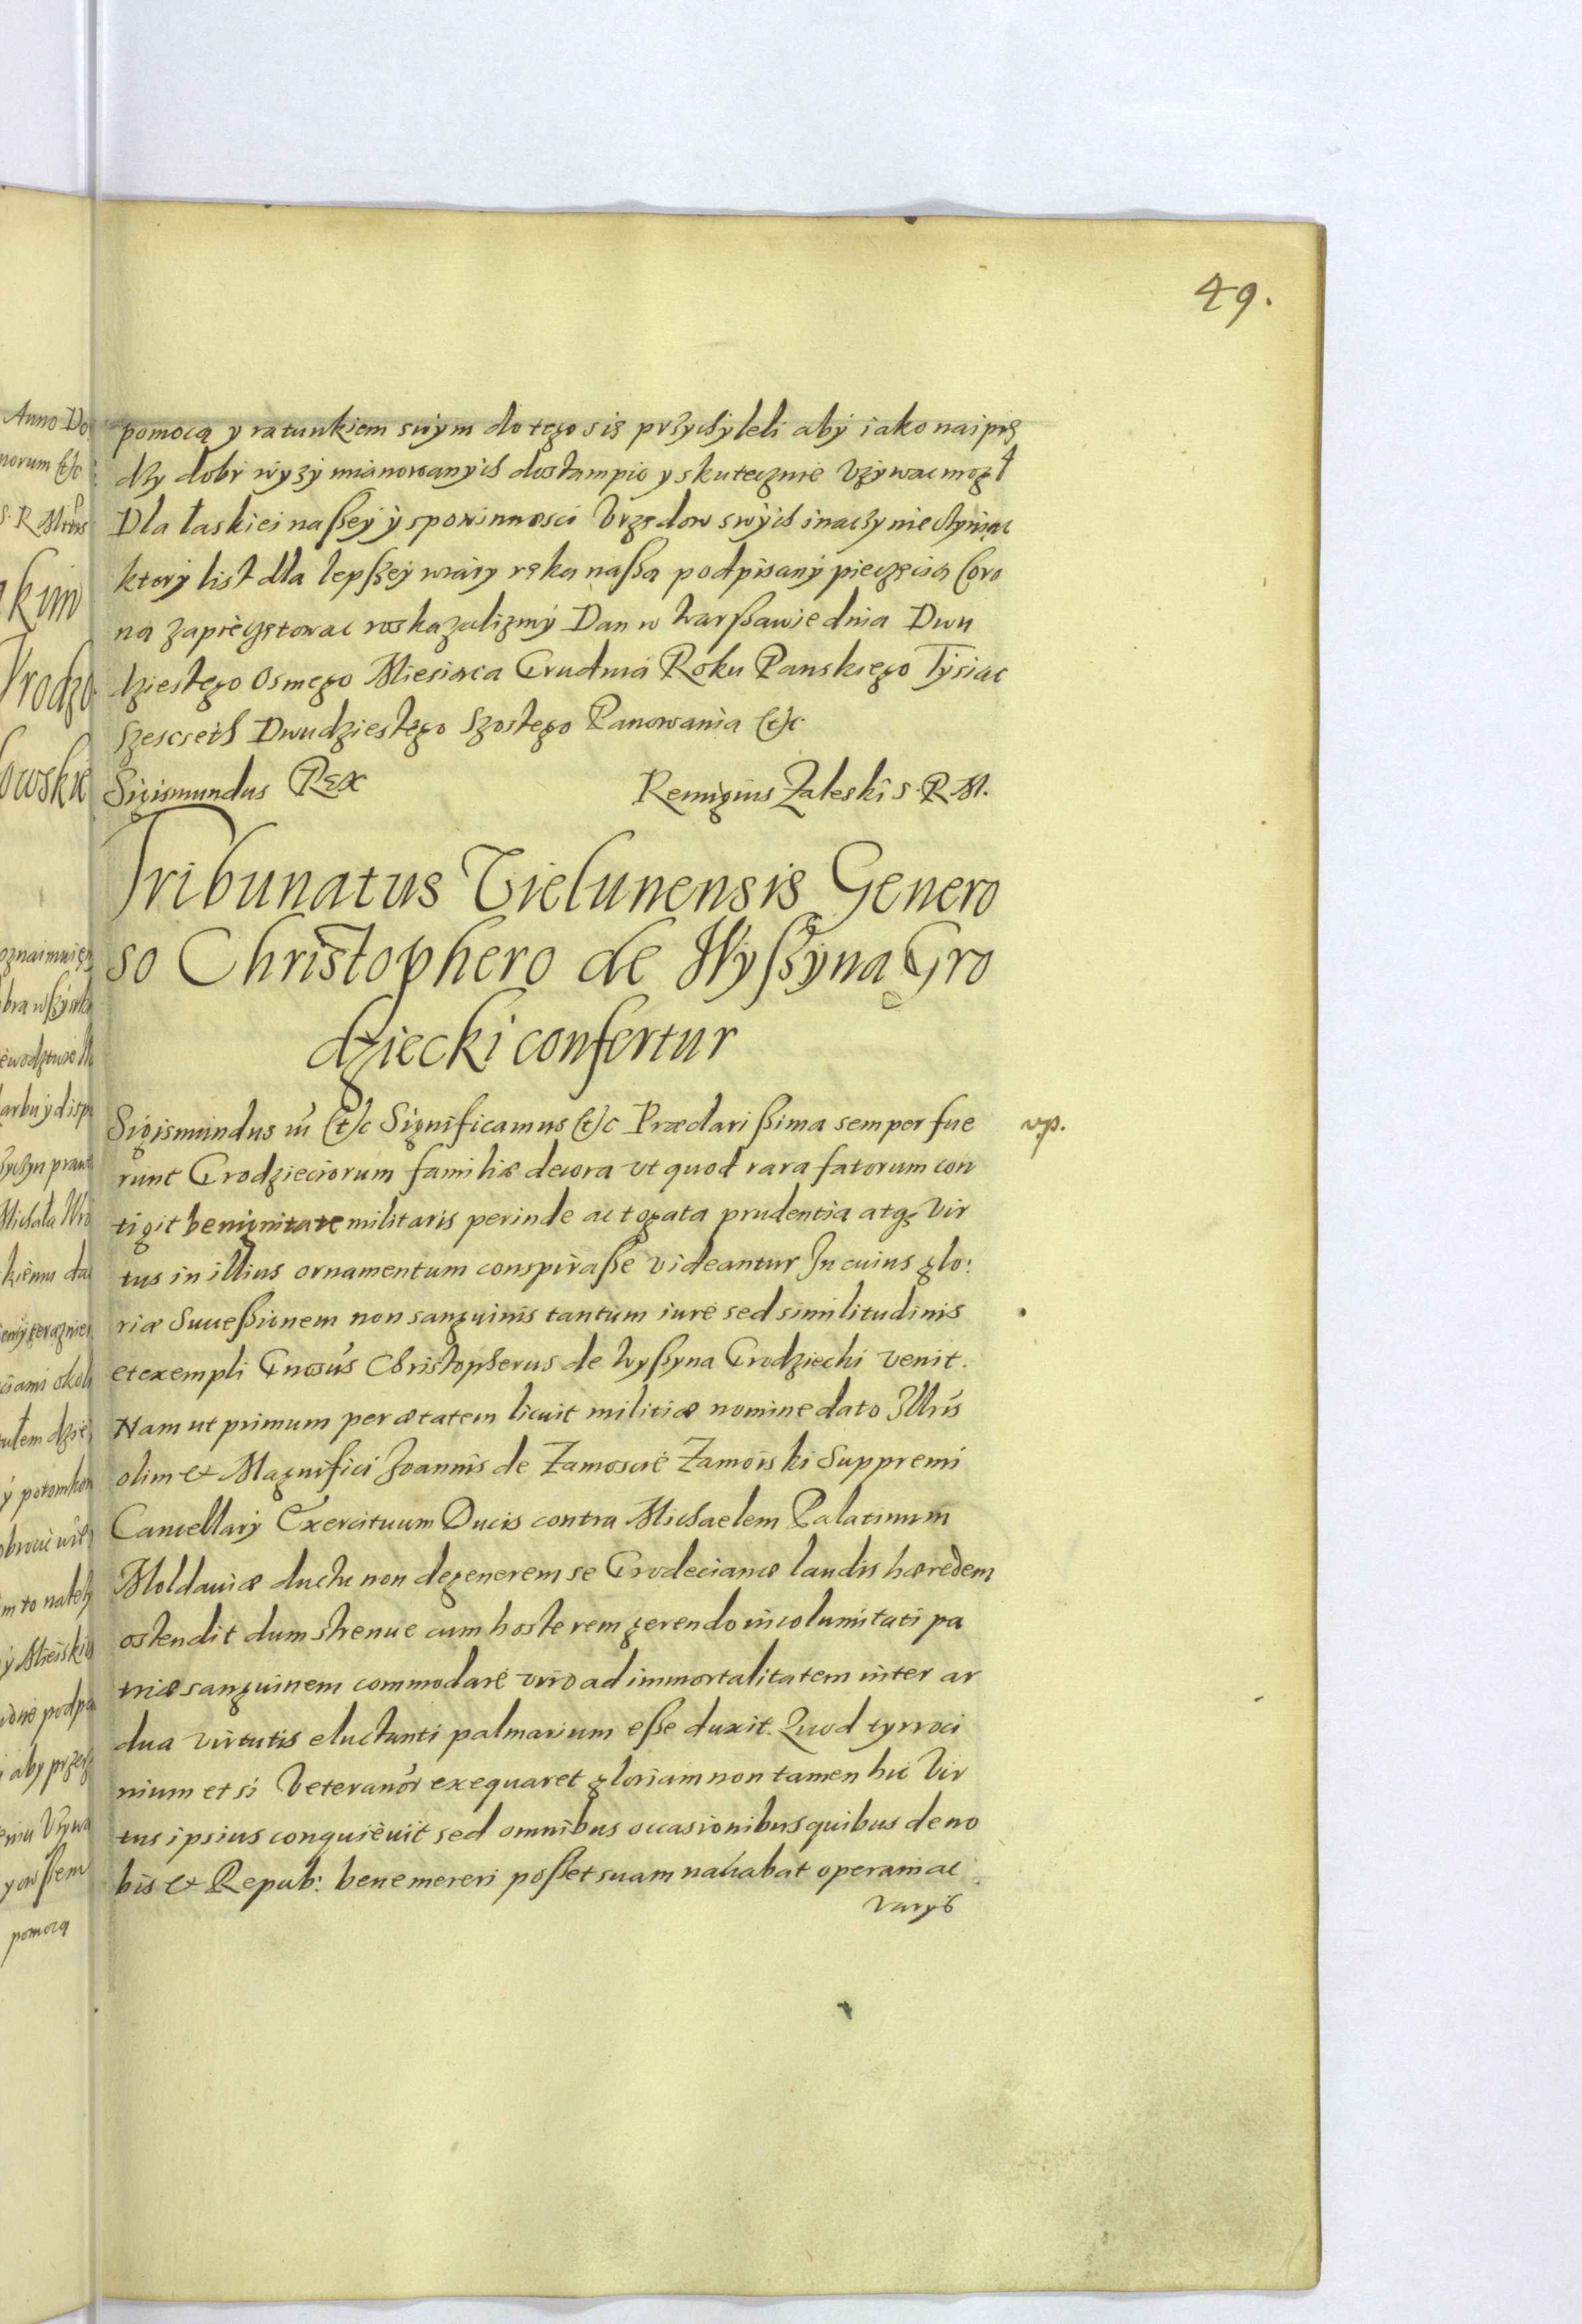 49.
pomocą y ratunkiem swym do tego się przychyleli aby iako naiprę
dzy dobr wyzy mianowanych dostampic y skutecznie Vzywac mogł
Dla łaskiei naßey y spowinnosci Vrzędow swych inaczy nie czyniąc
ktory list dla lepßey wiary ręką naßą podpisany pieczęcią Coro
ną zapieczętowac roskazalizmy Dan w Warßawie dnia Dwu
dziestego Osmego Miesiaca Grudnia Roku Panskiego Tysiac
Szescseth Dwudziestego Szostego Panowania etc
Sigismundus Rex Remigius Zaleski S. R. M.
Tribunatus Vielunensis Genero
so Christophero de Wyßyna Gro
dziecki confertur
Sigismundus III etc Significamus etc Præclarißima semper fue
vp.
runt Grodzieciorum familiæ decora vt quod rara fatorum con
tigit benignitate militaris perinde ac togata prudentia atq Vir
tus in illius ornamentum conspiraße videantur In cuius glo:
riæ Succeßionem non sanguinis tantum iure sed similitudinis
et exempli Gnosus Christopherus de Wyßyna Grodziecki venit.
Nam ut primum per ætatem licuit militiæ nomine dato Illris
olim et Magnifici Joannis de Zamoscie Zamoiski Suppremi
Cancellarij Exercituum Ducis contra Michaelem Palatinum
Moldauiæ ductu non degenerem se Grodecianæ laudis hæredem
ostendit dum strenue cum hoste rem gerendo incolumitati pa
triæ sanguinem commodare viro ad immortalitatem inter ar
dua virtutis eluctanti palmarium eße duxit. Quod tyroci
nium et si Veteranor exequaret gloriam non tamen hic Vir
tus ipsius conquieuit sed omnibus occasionibus quibus de no
bis et Repub: bene mereri poßet suam nauabat operam ac
varijs